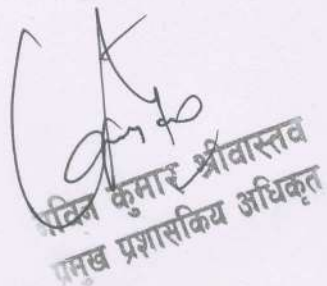 कुमार श्रीवास्तव
प्रमुख प्रशासकिय अधिकृत